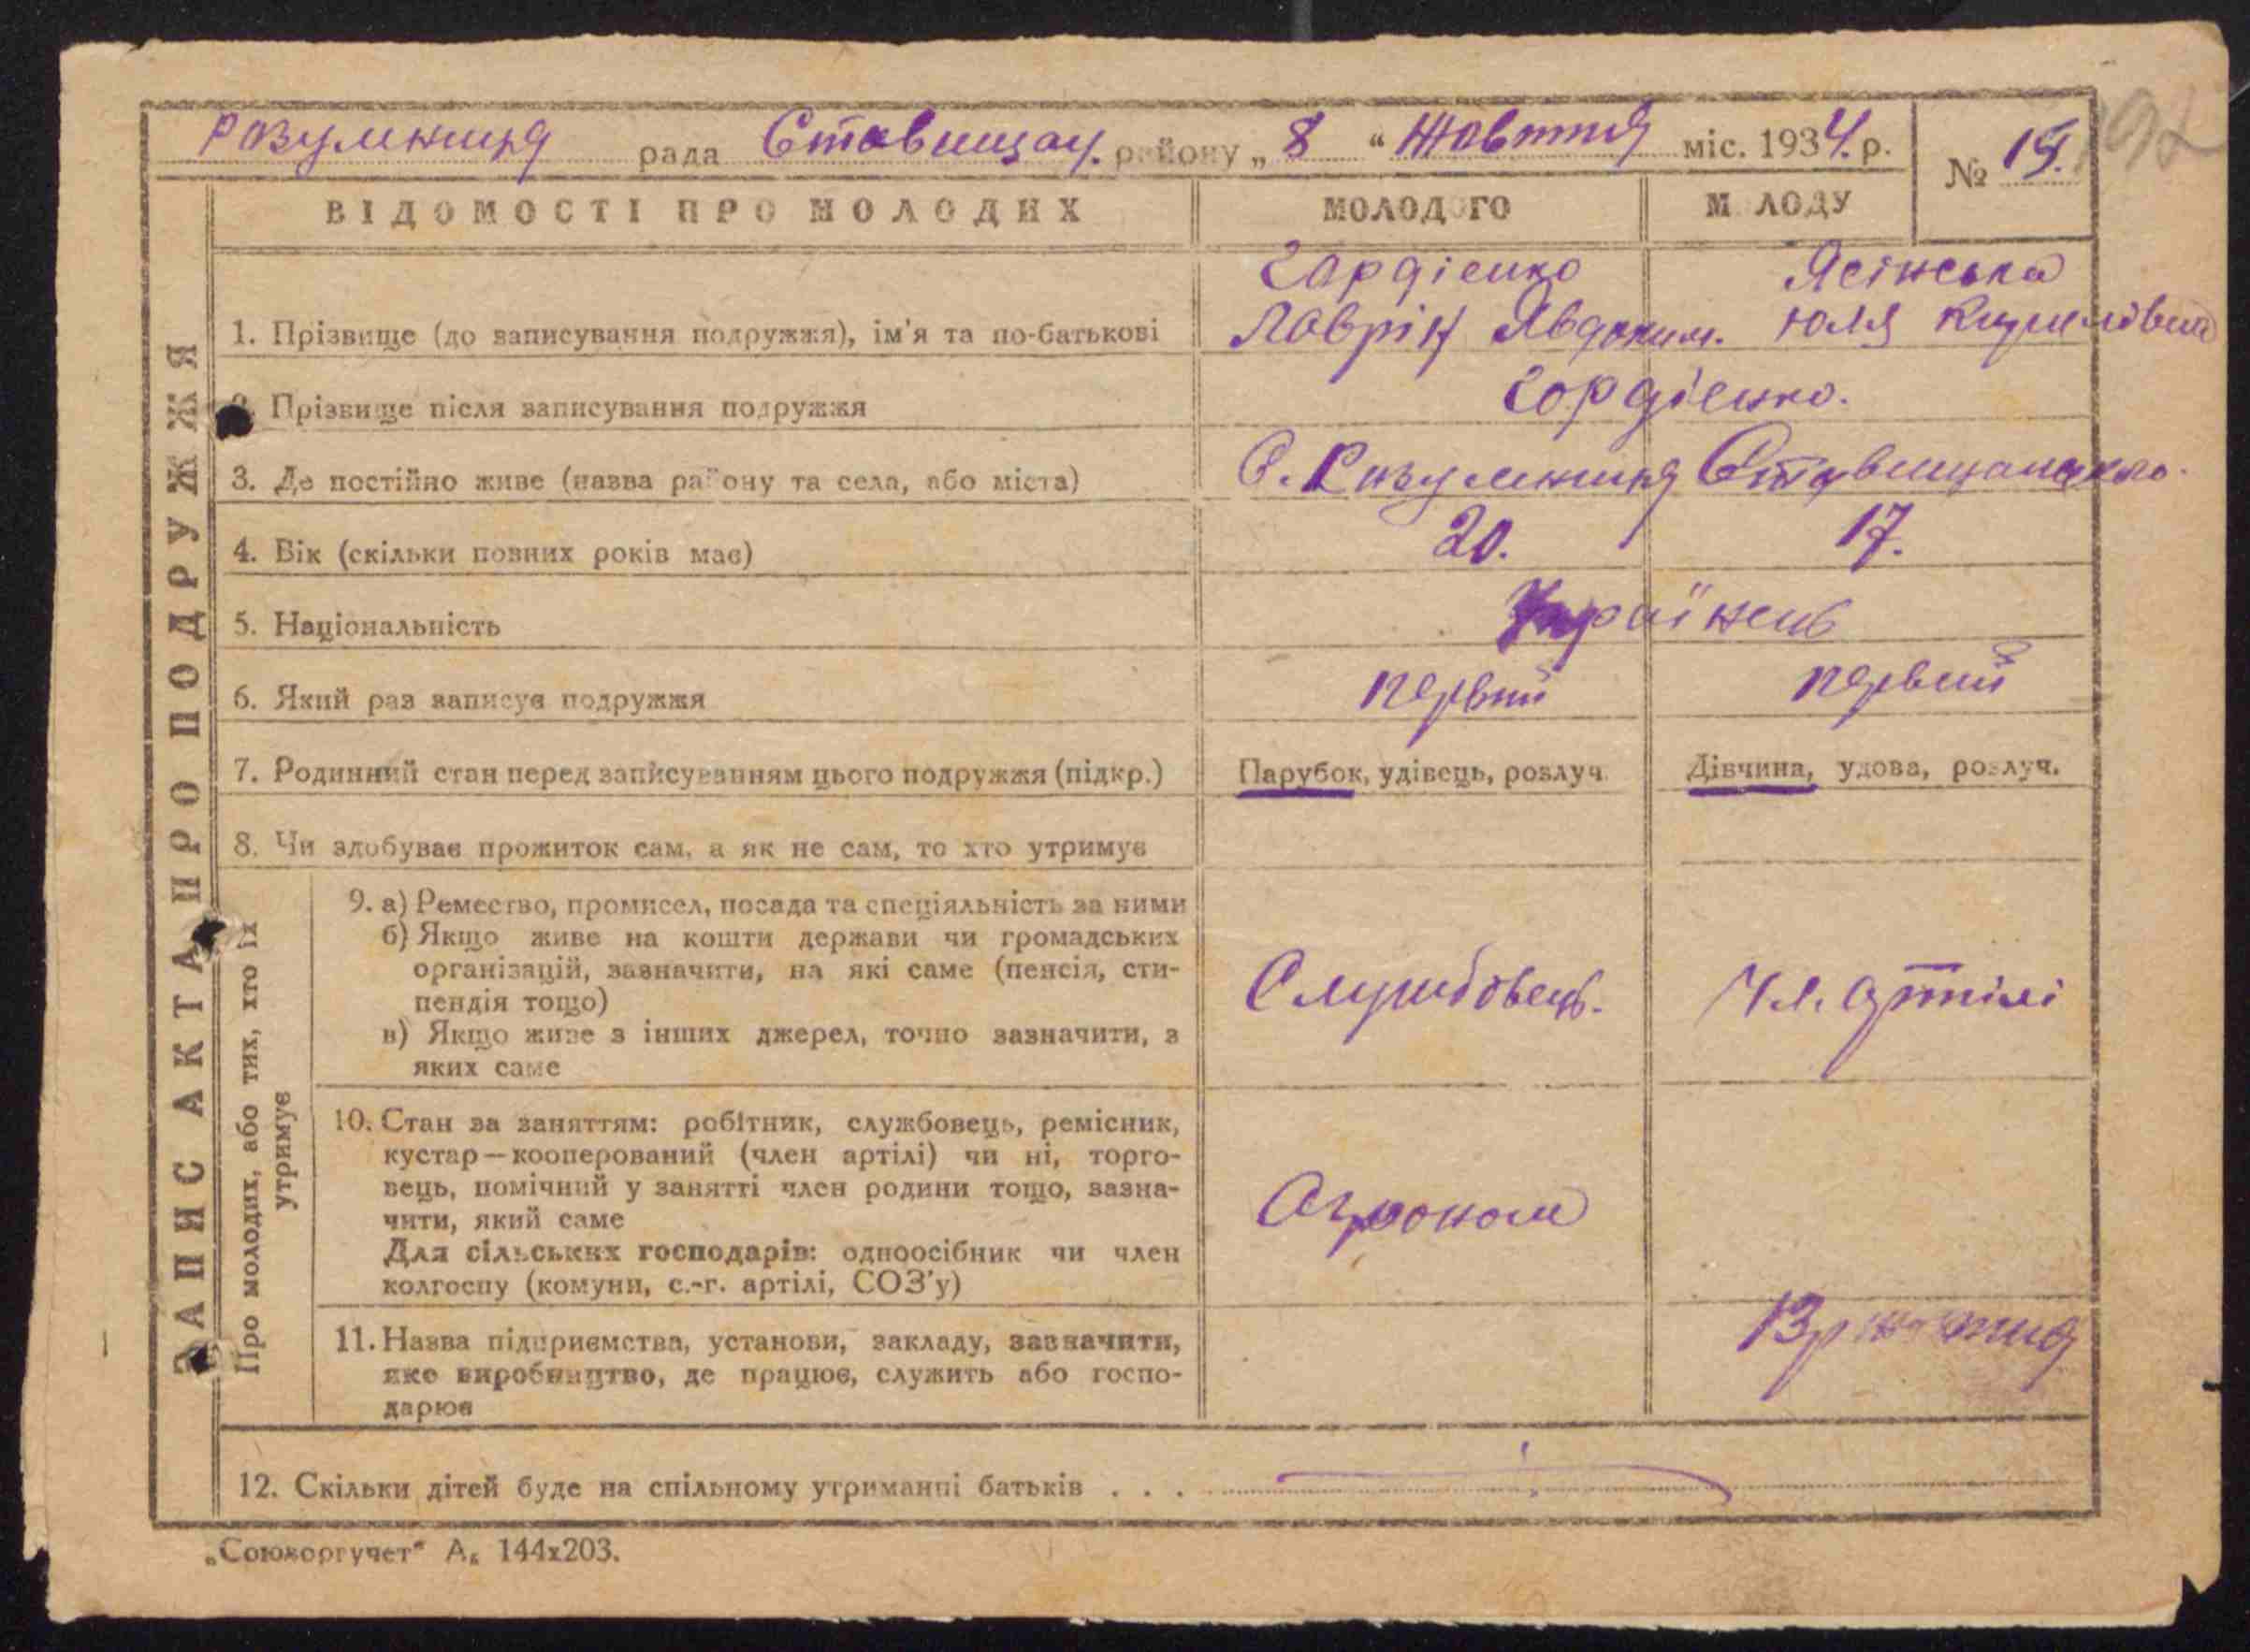 Розумниця рада Ставищан. району „ 8 “ Жовтня міс. 1934. р.
№ 19.
192
ВІДОМОСТІ ПРО МОЛОДИХ
МОЛОДОГО
МОЛОДУ
ЗАПИС АКТА ПРО ПОДРУЖЖЯ
1. Прізвище (до записування подружжя), ім'я та по-батькові
Гордієнко
Лаврін Явдоким.
Ясінська
Юля Кирилівна
2. Прізвище після записування подружжя
Гордієнко.
3. Де постійно живе (назва району та села, або міста)
С. Розумниця Ставищанська.
4. Вік (скільки повних років має)
20.
17.
5. Національність
Українець
6. Який раз записує подружжя
первий
первий
7. Родинний стан перед записуванням цього подружжя (підкр.)
Парубок, удівець, розлуч.
Дівчина, удова, розлуч.
8. Чи здобуває прожиток сам, а як не сам, то хто утримує
Про молодих, або тих, хто їх
утримує
9. а) Ремество, промисел, посада та спеціяльність за ними
б) Якщо живе на кошти держави чи громадських
організацій, зазначити, на які саме (пенсія, сти-
пендія тощо)
в) Якщо живе з інших джерел, точно зазначити, з
яких саме
Службовець.
Чл. Артілі
10. Стан за заняттям: робітник, службовець, ремісник,
кустар—кооперований (член артілі) чи ні, торго-
вець, помічний у занятті член родини тощо, зазна-
чити, який саме
Для сільських господарів: одноосібник чи член
колгоспу (комуни, с.-г. артілі, СОЗ'у)
Агроном
11. Назва підприємства, установи, закладу, зазначити,
яке виробництво, де працює, служить або госпо-
дарює
12. Скільки дітей буде на спільному утриманні батьків . . .
„Союзоргучет“ А₆ 144х203.